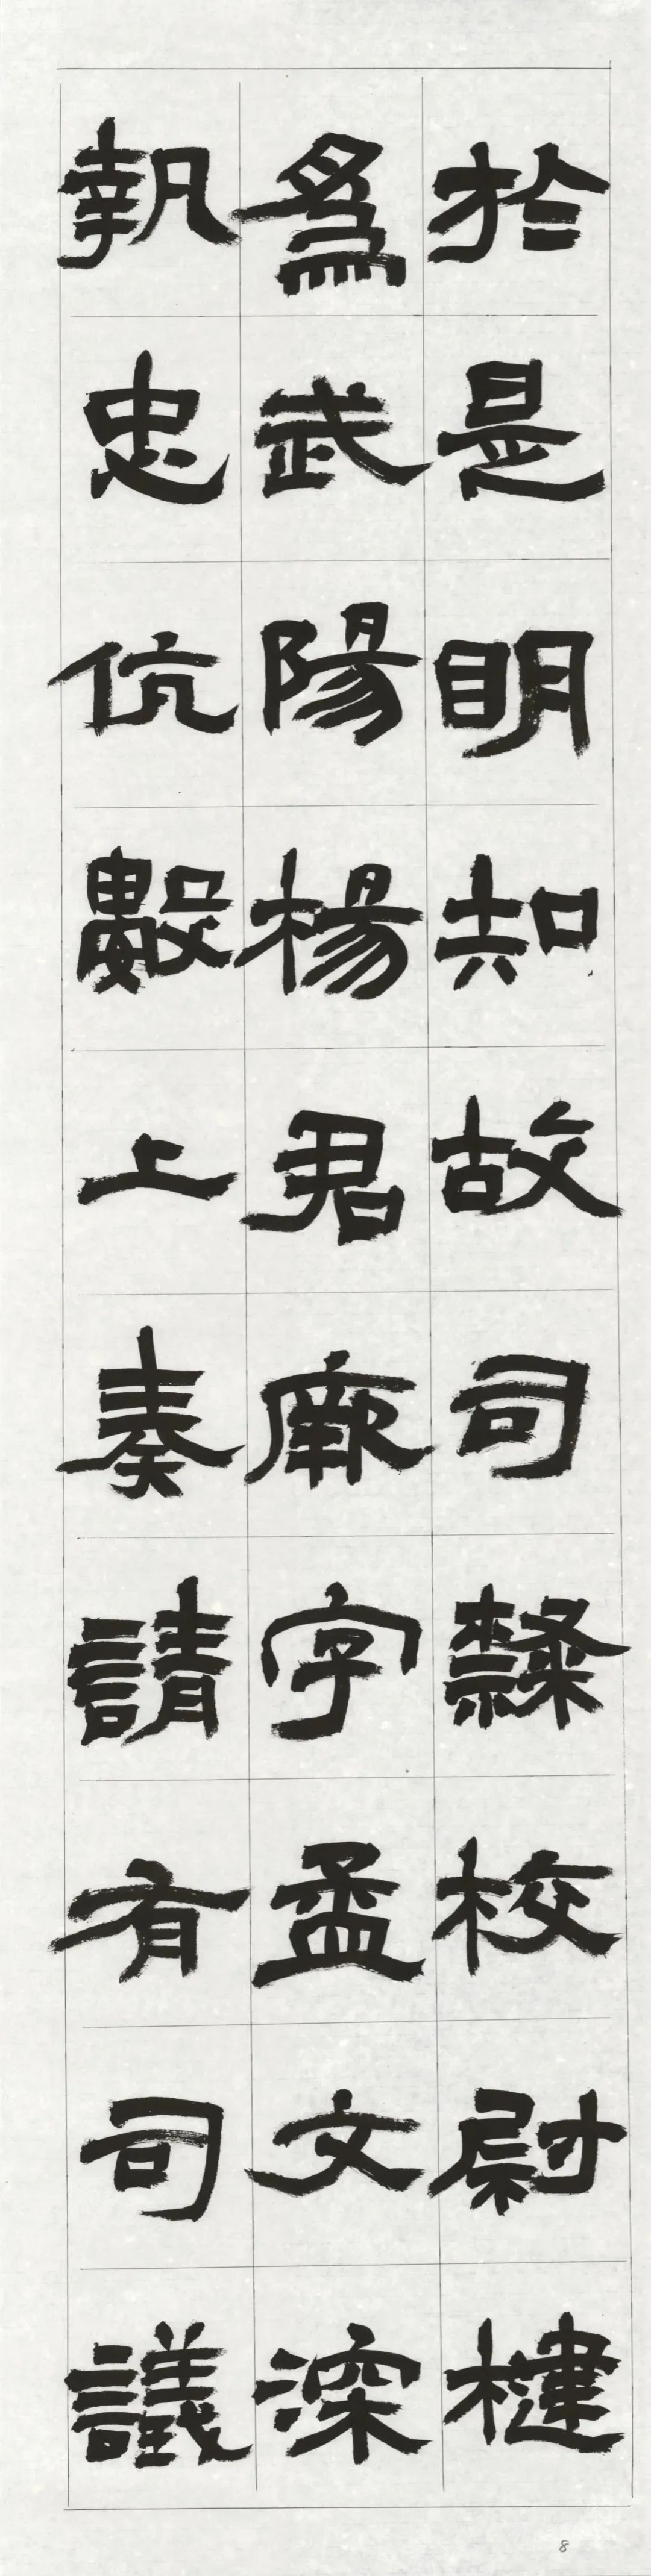 於是明知故司隸校尉楗
爲武陽楊君厥字孟文深
執忠伉數上奏請有司議
8